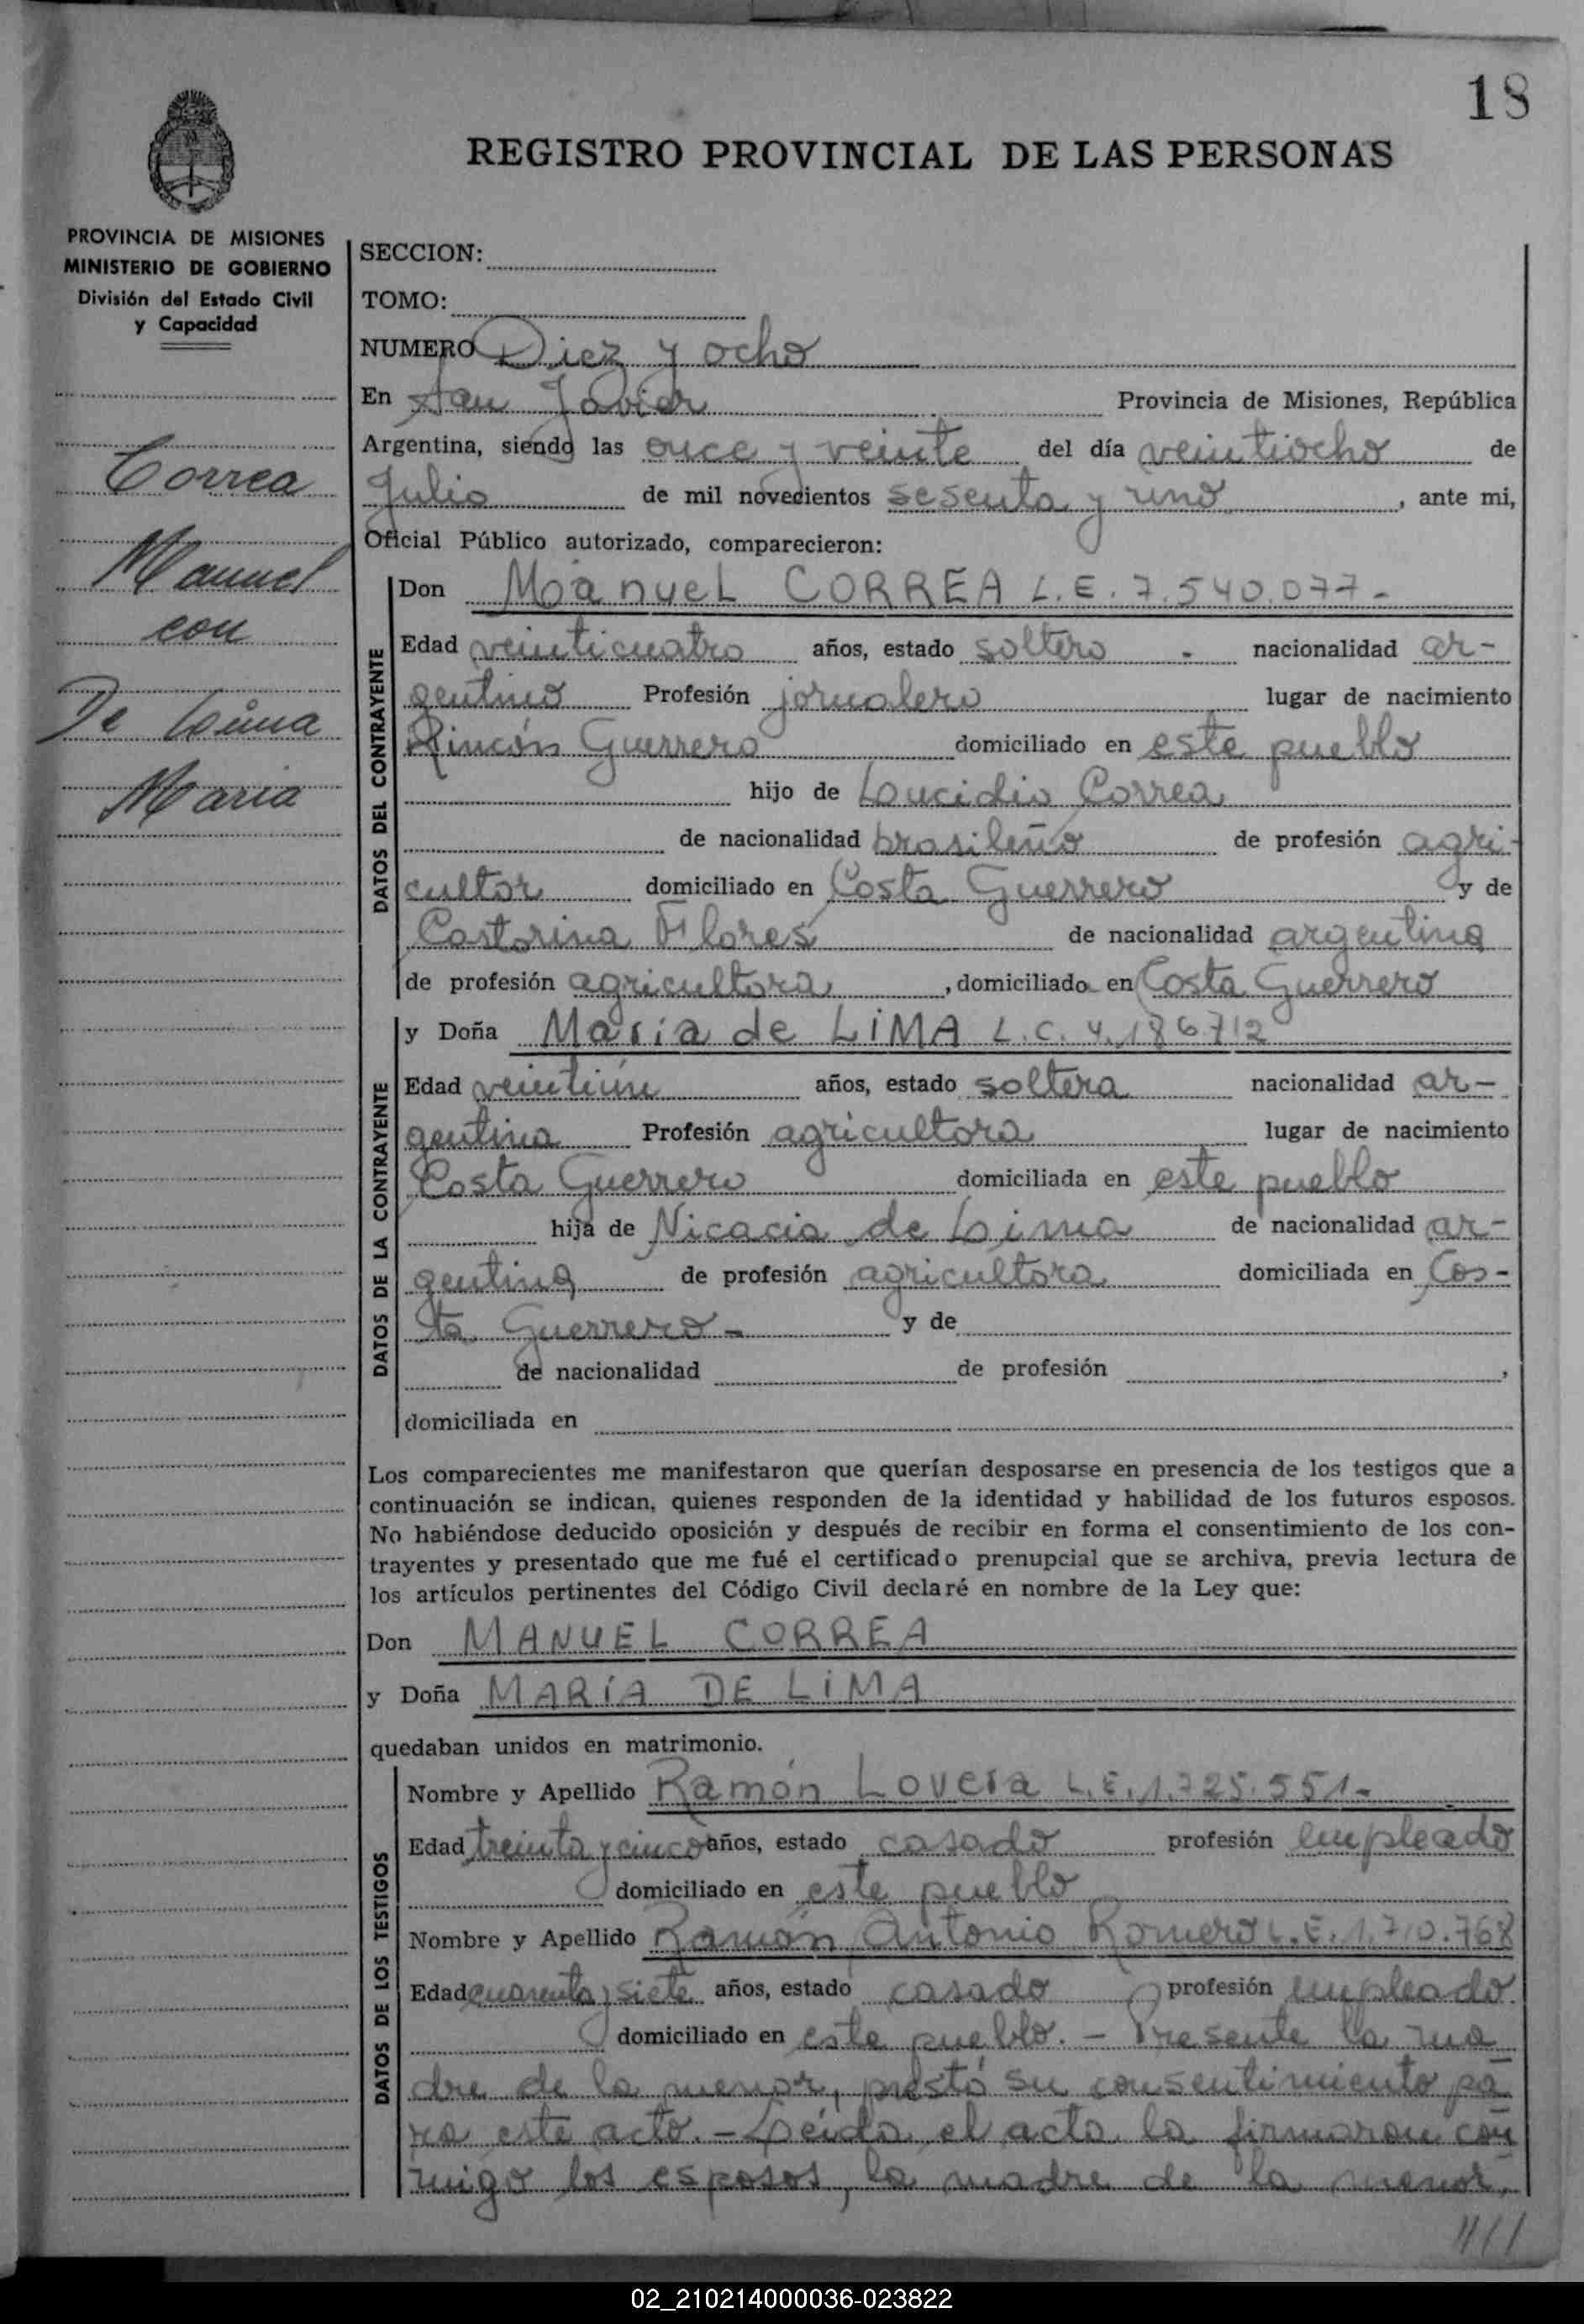 18
REGISTRO PROVINCIAL DE LAS PERSONAS
PROVINCIA DE MISIONES
MINISTERIO DE GOBIERNO
División del Estado Civil
y Capacidad
Correa
Manuel
con
De Lima
Maria
SECCION:
TOMO:
NUMERO Diez y ocho
En San Javier Provincia de Misiones, República
Argentina, siendo las once y veinte del día veintiocho de
Julio de mil novecientos sesenta y uno, ante mi,
Oficial Público autorizado, comparecieron:
DATOS DEL CONTRAYENTE
Don Manuel CORREA L.E. 7.540.077-
Edad veinticuatro años, estado soltero - nacionalidad ar-
gentino Profesión jornalero lugar de nacimiento
Rincón Guerrero domiciliado en este pueblo
hijo de Loucidio Correa
de nacionalidad brasileño de profesión agri-
cultor domiciliado en Costa Guerrero y de
Castorina Flores de nacionalidad argentina
de profesión agricultora, domiciliado en Costa Guerrero
DATOS DE LA CONTRAYENTE
y Doña María de LIMA L.C. 4.186.712
Edad veintiún años, estado soltera nacionalidad ar-
gentina Profesión agricultora lugar de nacimiento
Costa Guerrero domiciliada en este pueblo
hija de Nicacia de Lima de nacionalidad ar-
gentina de profesión agricultora domiciliada en Cos-
ta Guerrero- y de
de nacionalidad de profesión ,
domiciliada en
Los comparecientes me manifestaron que querían desposarse en presencia de los testigos que a
continuación se indican, quienes responden de la identidad y habilidad de los futuros esposos.
No habiéndose deducido oposición y después de recibir en forma el consentimiento de los con-
trayentes y presentado que me fué el certificado prenupcial que se archiva, previa lectura de
los artículos pertinentes del Código Civil declaré en nombre de la Ley que:
Don MANUEL CORREA
y Doña MARÍA DE LIMA
quedaban unidos en matrimonio.
DATOS DE LOS TESTIGOS
Nombre y Apellido Ramón Lovera L.E. 1.725.551-
Edad treinta y cinco años, estado casado profesión empleado
domiciliado en este pueblo
Nombre y Apellido Ramón Antonio Romero L.E. 1.710.768
Edad cuarenta y siete años, estado casado profesión empleado.
domiciliado en este pueblo. - Presente la ma
dre de la menor, prestó su consentimiento pa
ra este acto. - Leída el acta la firmaron con
migo los esposos, la madre de la menor,
////
02_210214000036-023822